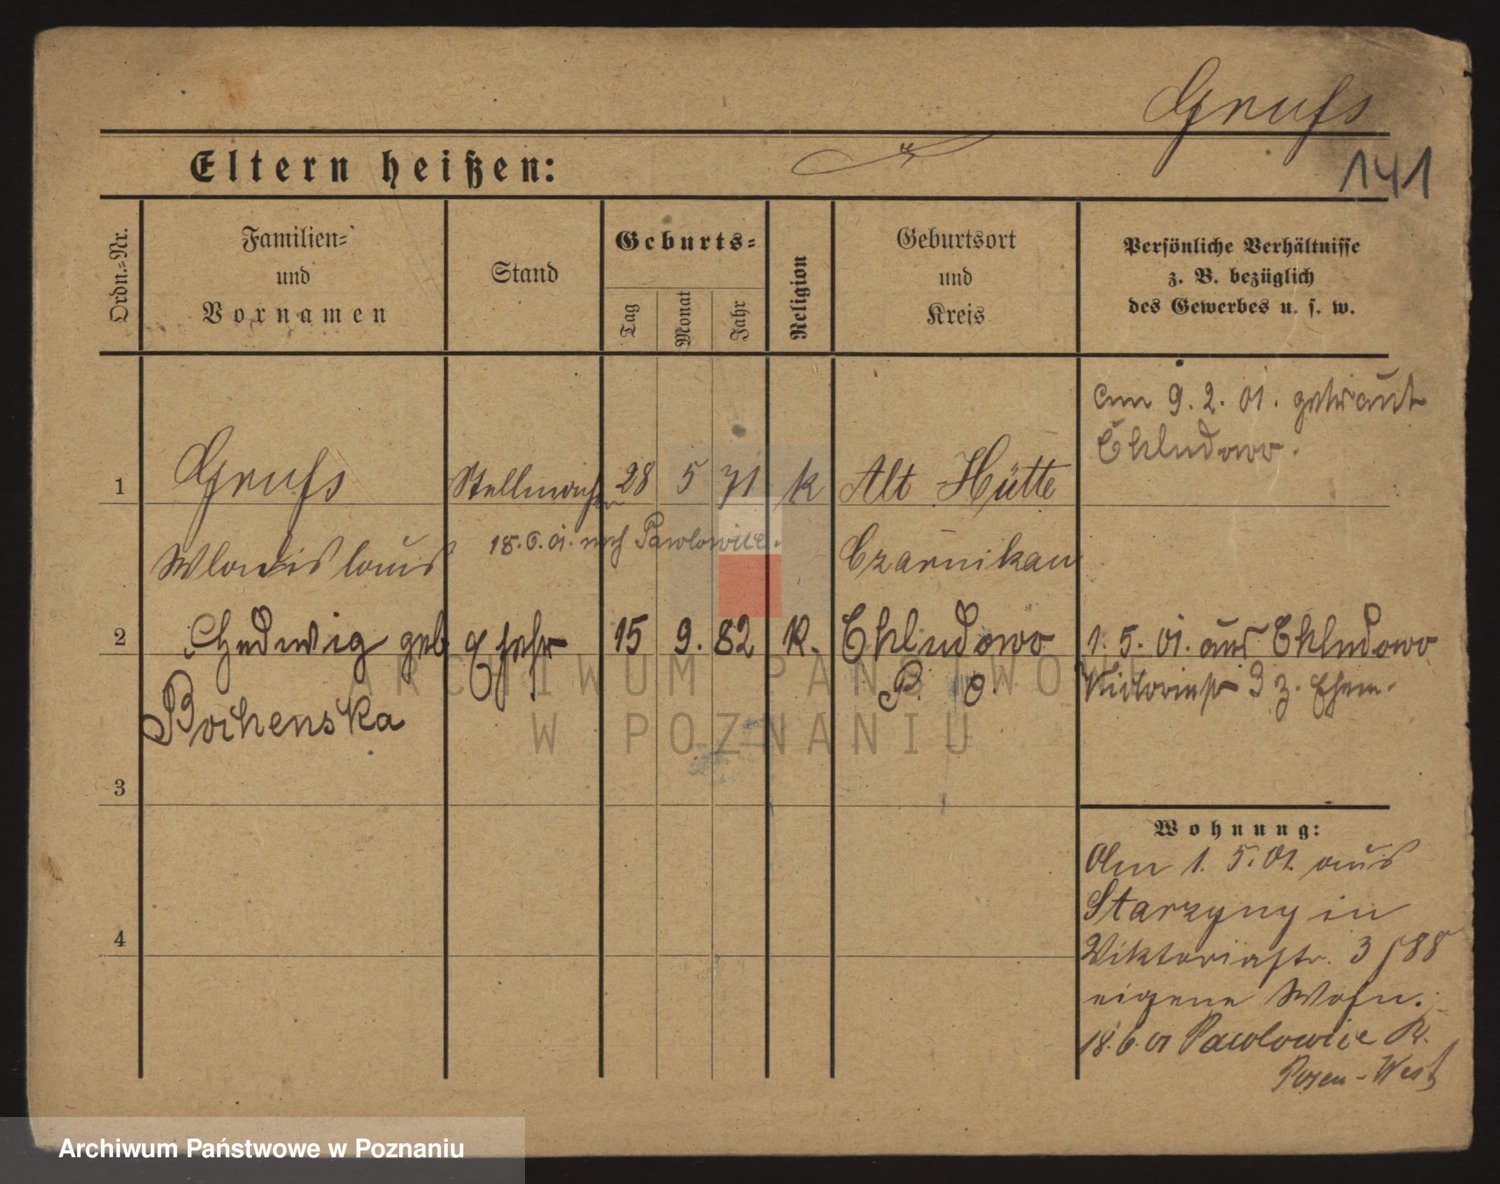 Gruß
Eltern heißen:
141
Ordn.-Nr.
Familien-
und
Vornamen
Stand
Geburts-
Tag
Monat
Jahr
Religion
Geburtsort
und
Kreis
Persönliche Verhältnisse
z. B. bezüglich
des Gewerbes u. s. w.
am 9. 2. 01. getraut
Chludowo.
1 Gruß Stellmacher 28 5 71 k Alt Hütte
18. 6. 01. nach Pawlowice.
Wladislaus Czarnikau
2 Hedwig geb Ehefr 15 9. 82 k. Chludowo 1. 5. 01. aus Chludowo
Bochenska P. O. Victoriastr 3 z. Ehem.
ARCHIWUM PAŃSTWOWE
W POZNANIU
3
Wohnung:
Am 1. 5. 01. aus
Starzyny in
4
Viktoriastr. 3 / 88
eigene Wohn.
18. 6. 01 Pawlowice K.
Posen-West
Archiwum Państwowe w Poznaniu